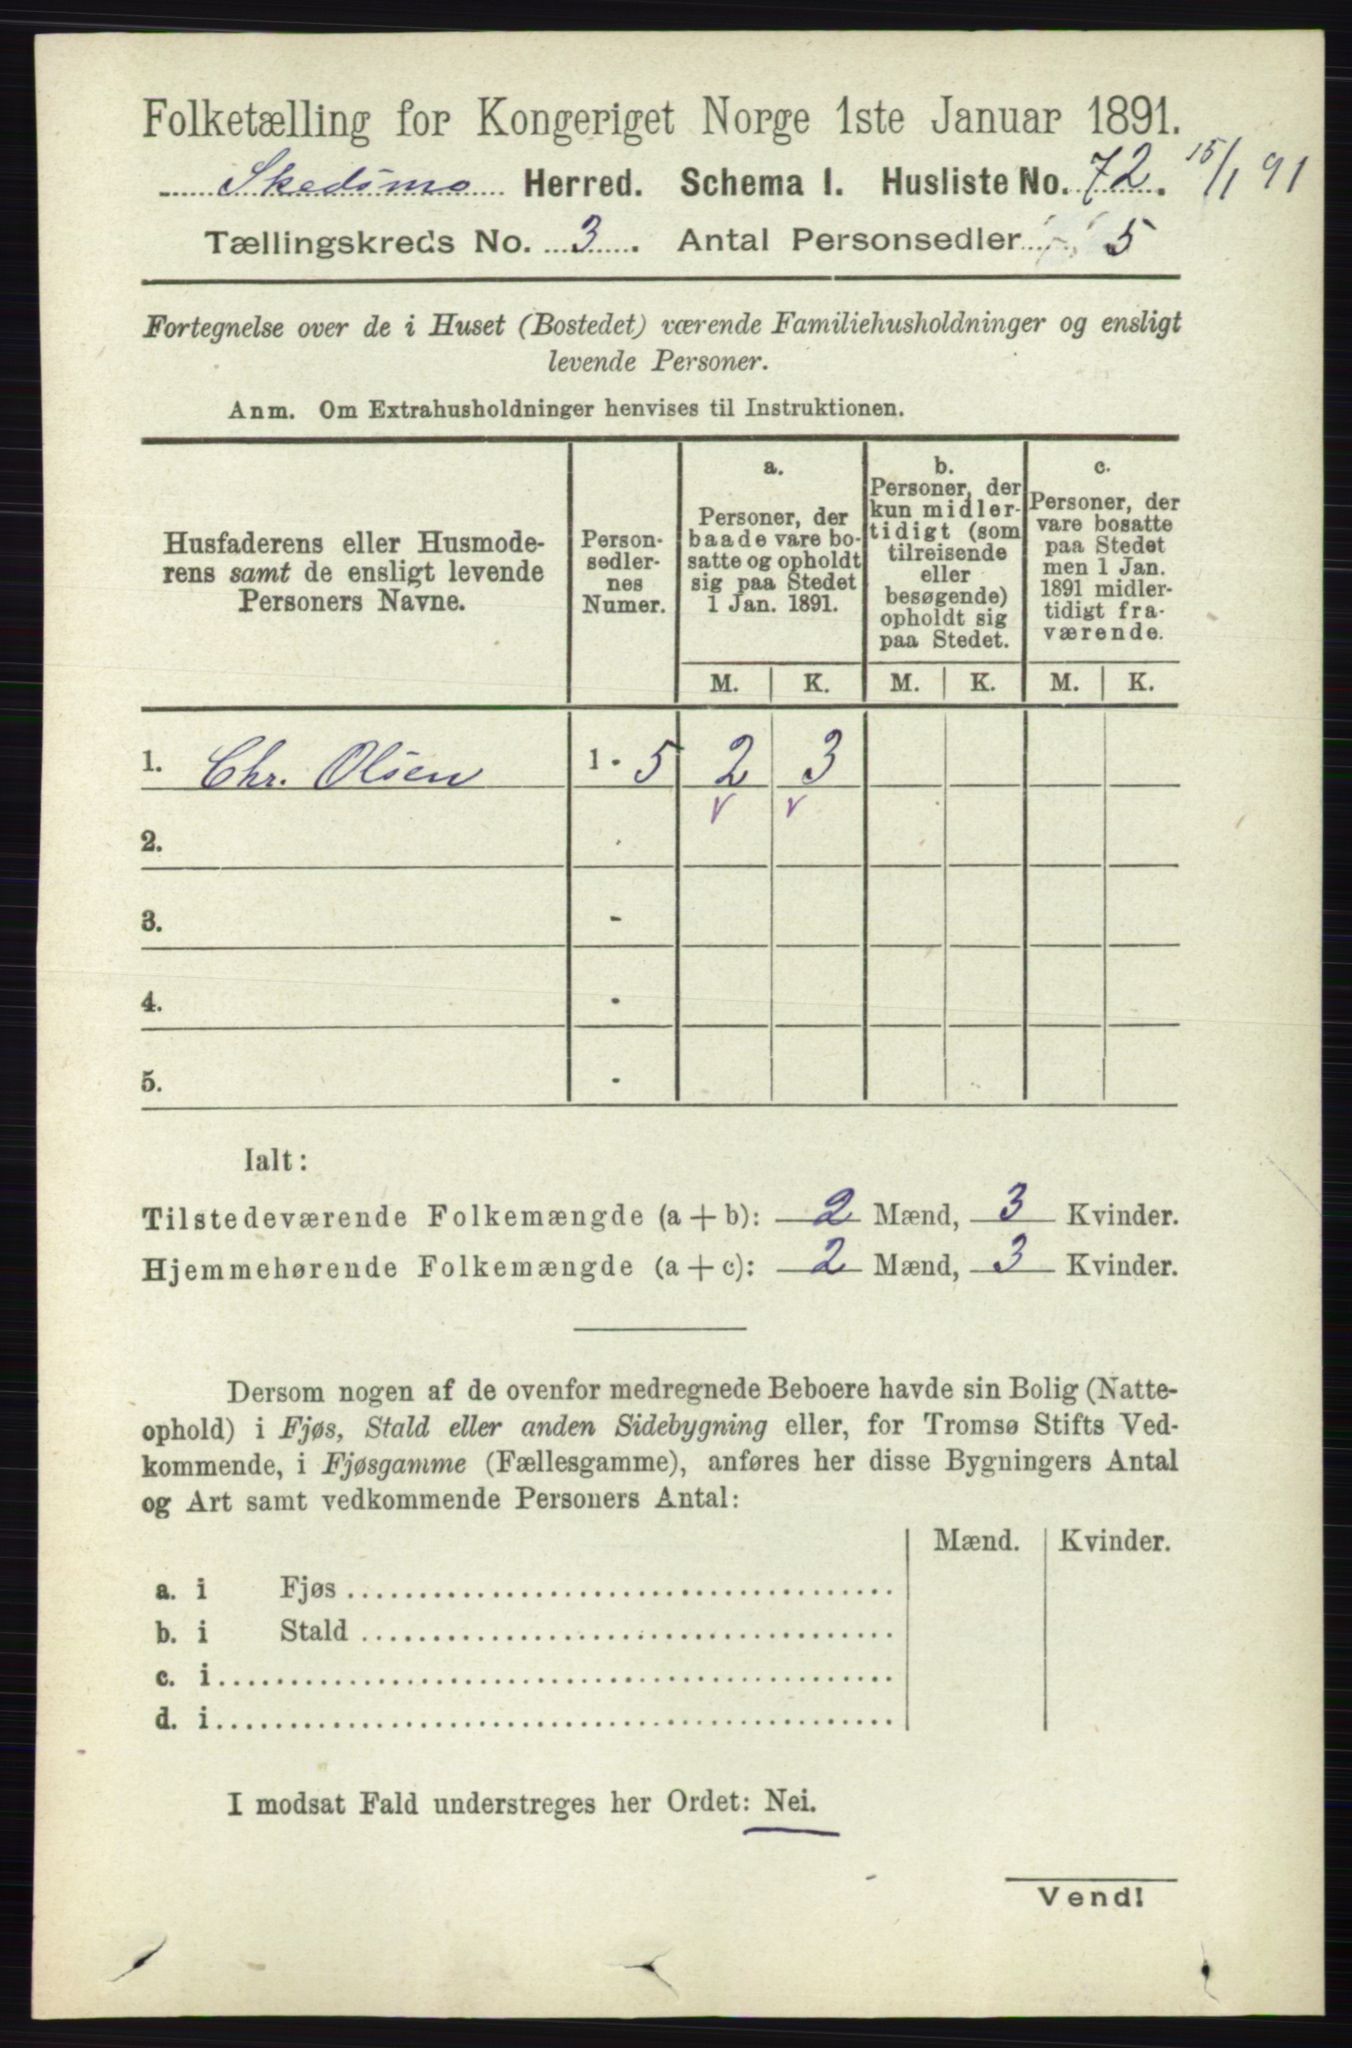 Folketælling for Kongeriget Norge 1ste Januar 1891.
Skedsmo Herred. Schema I. Husliste No. 72. 15/1 91
Tællingskreds No. 3. Antal Personsedler 5
Fortegnelse over de i Huset (Bostedet) værende Familiehusholdninger og ensligt
levende Personer.
Anm. Om Extrahusholdninger henvises til Instruktionen.
Husfaderens eller Husmode-
rens samt de ensligt levende
Personers Navne.
Person-
sedler-
nes
Numer.
a.
Personer, der
baade vare bo-
satte og opholdt
sig paa Stedet
1 Jan. 1891.
b.
Personer, der
kun midler-
tidigt (som
tilreisende
eller
besøgende)
opholdt sig
paa Stedet.
c.
Personer, der
vare bosatte
paa Stedet
men 1 Jan.
1891 midler-
tidigt fra-
værende.
M. K. M. K. M. K.
1. Chr. Olsen 1 - 5 2 3
v v
2. -
3. -
4. -
5. -
Ialt:
Tilstedeværende Folkemængde (a + b): 2 Mænd, 3 Kvinder.
Hjemmehørende Folkemængde (a + c): 2 Mænd, 3 Kvinder.
Dersom nogen af de ovenfor medregnede Beboere havde sin Bolig (Natte-
ophold) i Fjøs, Stald eller anden Sidebygning eller, for Tromsø Stifts Ved-
kommende, i Fjøsgamme (Fællesgamme), anføres her disse Bygningers Antal
og Art samt vedkommende Personers Antal:
Mænd. Kvinder.
a. i Fjøs
b. i Stald
c. i
d. i
I modsat Fald understreges her Ordet: Nei.
Vend!